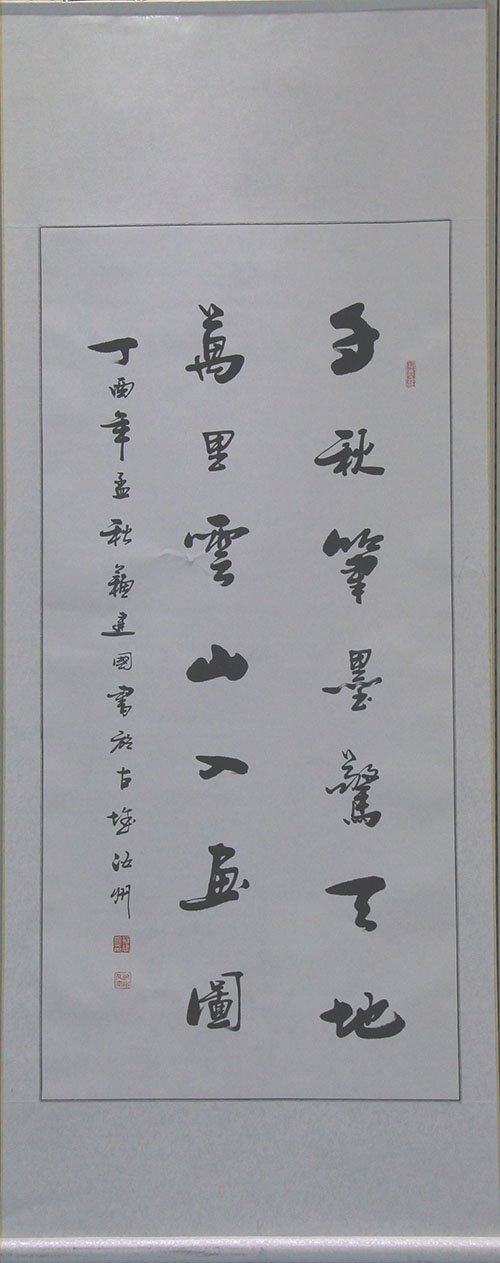 千秋筆墨驚天地
萬里雲山入畫圖
丁酉年孟秋蘇建國書於古城汝州